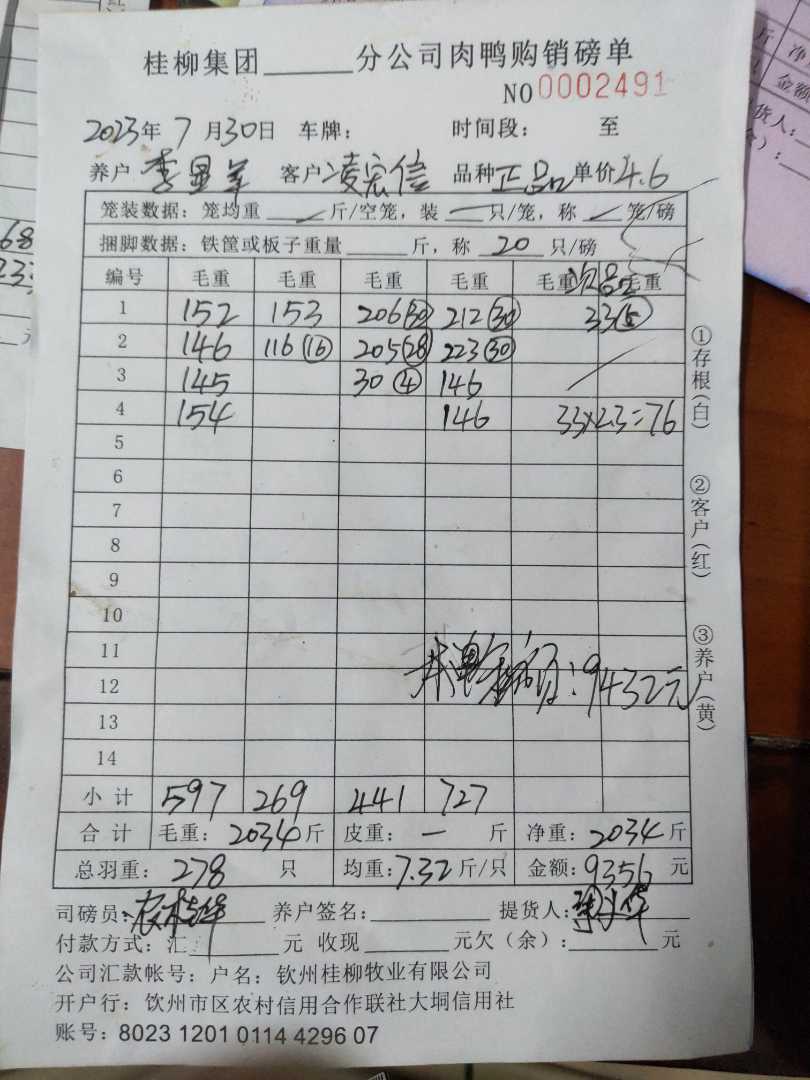 桂柳集团______分公司肉鸭购销磅单
NO 0002491
2023年 7 月30日 车牌： 时间段： 至
养户 李显 客户 凌宏信 品种 正品 单价 4.6
笼装数据：笼均重 斤/空笼，装 只/笼，称 笼/磅
捆脚数据：铁筐或板子重量 斤，称 20 只/磅
编号 毛重 毛重 毛重 毛重 毛重 次品 毛重
1 152 153 206(30) 212(30) 33(5)
2 146 116(16) 205(28) 223(30)
3 145 30(4) 146
4 154 146 33×2.3=76
5
6
7
8
9
10
11
12 ：9432元
13
14
小计 597 269 441 727
合计 毛重：2034斤 皮重：— 斤 净重：2034斤
总羽重：278 只 均重：7.32斤/只 金额：9356 元
司磅员： 养户签名： 提货人：
付款方式：汇 元 收现 元欠（余）： 元
公司汇款帐号：户名：钦州桂柳牧业有限公司
开户行：钦州市区农村信用合作联社大垌信用社
账号：8023 1201 0114 4296 07
①存根（白）
②客户（红）
③养户（黄）